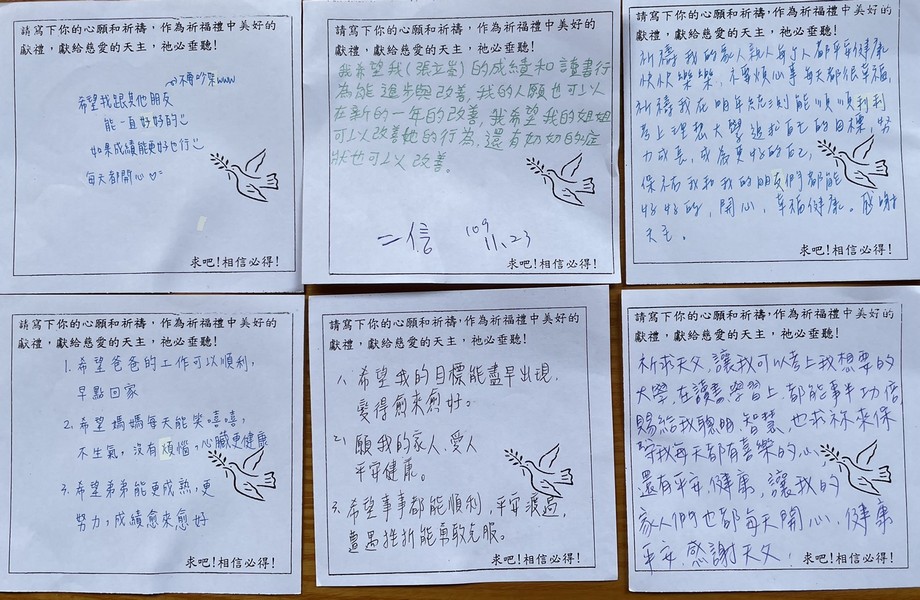 請寫下你的心願和祈禱，作為祈福禮中美好的
獻禮，獻給慈愛的天主，祂必垂聽！
希望我跟其他朋友
能一直好好的
如果成績能更好也行
每天都開心
求吧！相信必得！
請寫下你的心願和祈禱，作為祈福禮中美好的
獻禮，獻給慈愛的天主，祂必垂聽！
我希望我(張立崟)的成績和讀書行
為能進步與改善，我的人願也可以
在新的一年的改善，我希望我的姐姐
可以改善她的行為，還有奶奶的症
狀也可以改善。
二信 109 11.23
求吧！相信必得！
請寫下你的心願和祈禱，作為祈福禮中美好的
獻禮，獻給慈愛的天主，祂必垂聽！
祈禱我的家人親人每個人都平安健康
快快樂樂，不要煩心事每天都很幸福，
祈禱我在明年統測能順順利利
考上理想大學追求自己的目標，努
力成長，成為更好的自己，
保祐我和我的朋友們都能
好好的，開心，幸福健康。感謝
天主。
求吧！相信必得！
請寫下你的心願和祈禱，作為祈福禮中美好的
獻禮，獻給慈愛的天主，祂必垂聽！
1. 希望爸爸的工作可以順利，
早點回家
2. 希望媽媽每天能笑嘻嘻，
不生氣，沒有煩惱，心臟更健康
3. 希望弟弟能更成熟，更
努力，成績愈來愈好
求吧！相信必得！
請寫下你的心願和祈禱，作為祈福禮中美好的
獻禮，獻給慈愛的天主，祂必垂聽！
1、希望我的目標能盡早出現，
變得愈來愈好。
2、願我的家人、愛人
平安健康。
3、希望事事都能順利，平安渡過，
遭遇挫折能勇敢克服。
求吧！相信必得！
請寫下你的心願和祈禱，作為祈福禮中美好的
獻禮，獻給慈愛的天主，祂必垂聽！
祈求天父，讓我可以考上我想要的
大學，在讀書、學習上，都能事半功倍
賜給我聰明、智慧、也求祢來保
守我每天都有喜樂的心，
還有平安、健康，讓我的
家人們也都每天開心、健康
平安，感謝天父！
求吧！相信必得！